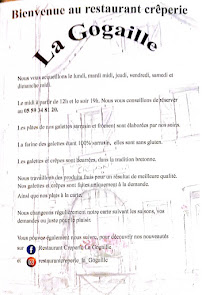 Bienvenue au restaurant crêperie
La Gogaille
Nous vous accueillons le lundi, mardi midi, jeudi, vendredi, samedi et
dimanche midi.
Le midi à partir de 12h et le soir 19h. Nous vous conseillons de réserver
au 05 59 34 81 20.
Les pâtes de nos galettes sarrasin et froment sont élaborées par nos soins.
La farine des galettes étant 100% sarrasin, elles sont sans gluten.
Les galettes et crêpes sont beurrées, dans la tradition bretonne.
Nous travaillons des produits frais pour un résultat de meilleure qualité.
Nos galettes et crêpes sont faites uniquement à la demande.
Ainsi que nos plats à la carte.
Nous changeons régulièrement notre carte suivant les saisons, vos
demandes ou juste pour le plaisir.
Vous pouvez également nous suivre, pour découvrir nos nouveautés
sur Restaurant Crêperie La Gogaille
et restaurantcreperie_la_Gogaille